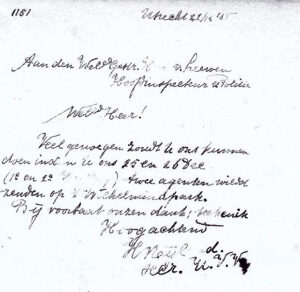 1181
Utrecht 22/12 '05
Aan den WelEd. Gestr. Heer v. Leeuwen
Hoofdinspekteur v. Politie
WelEd. Heer!
Veel genoegen zoudt U ons kunnen
doen indien U ons 25 en 26 Dec
(1e en 2e) twee agenten wildet
zenden op 't Wilhelminapark.
Bij voorbaat onzen dank,
Hoogachtend